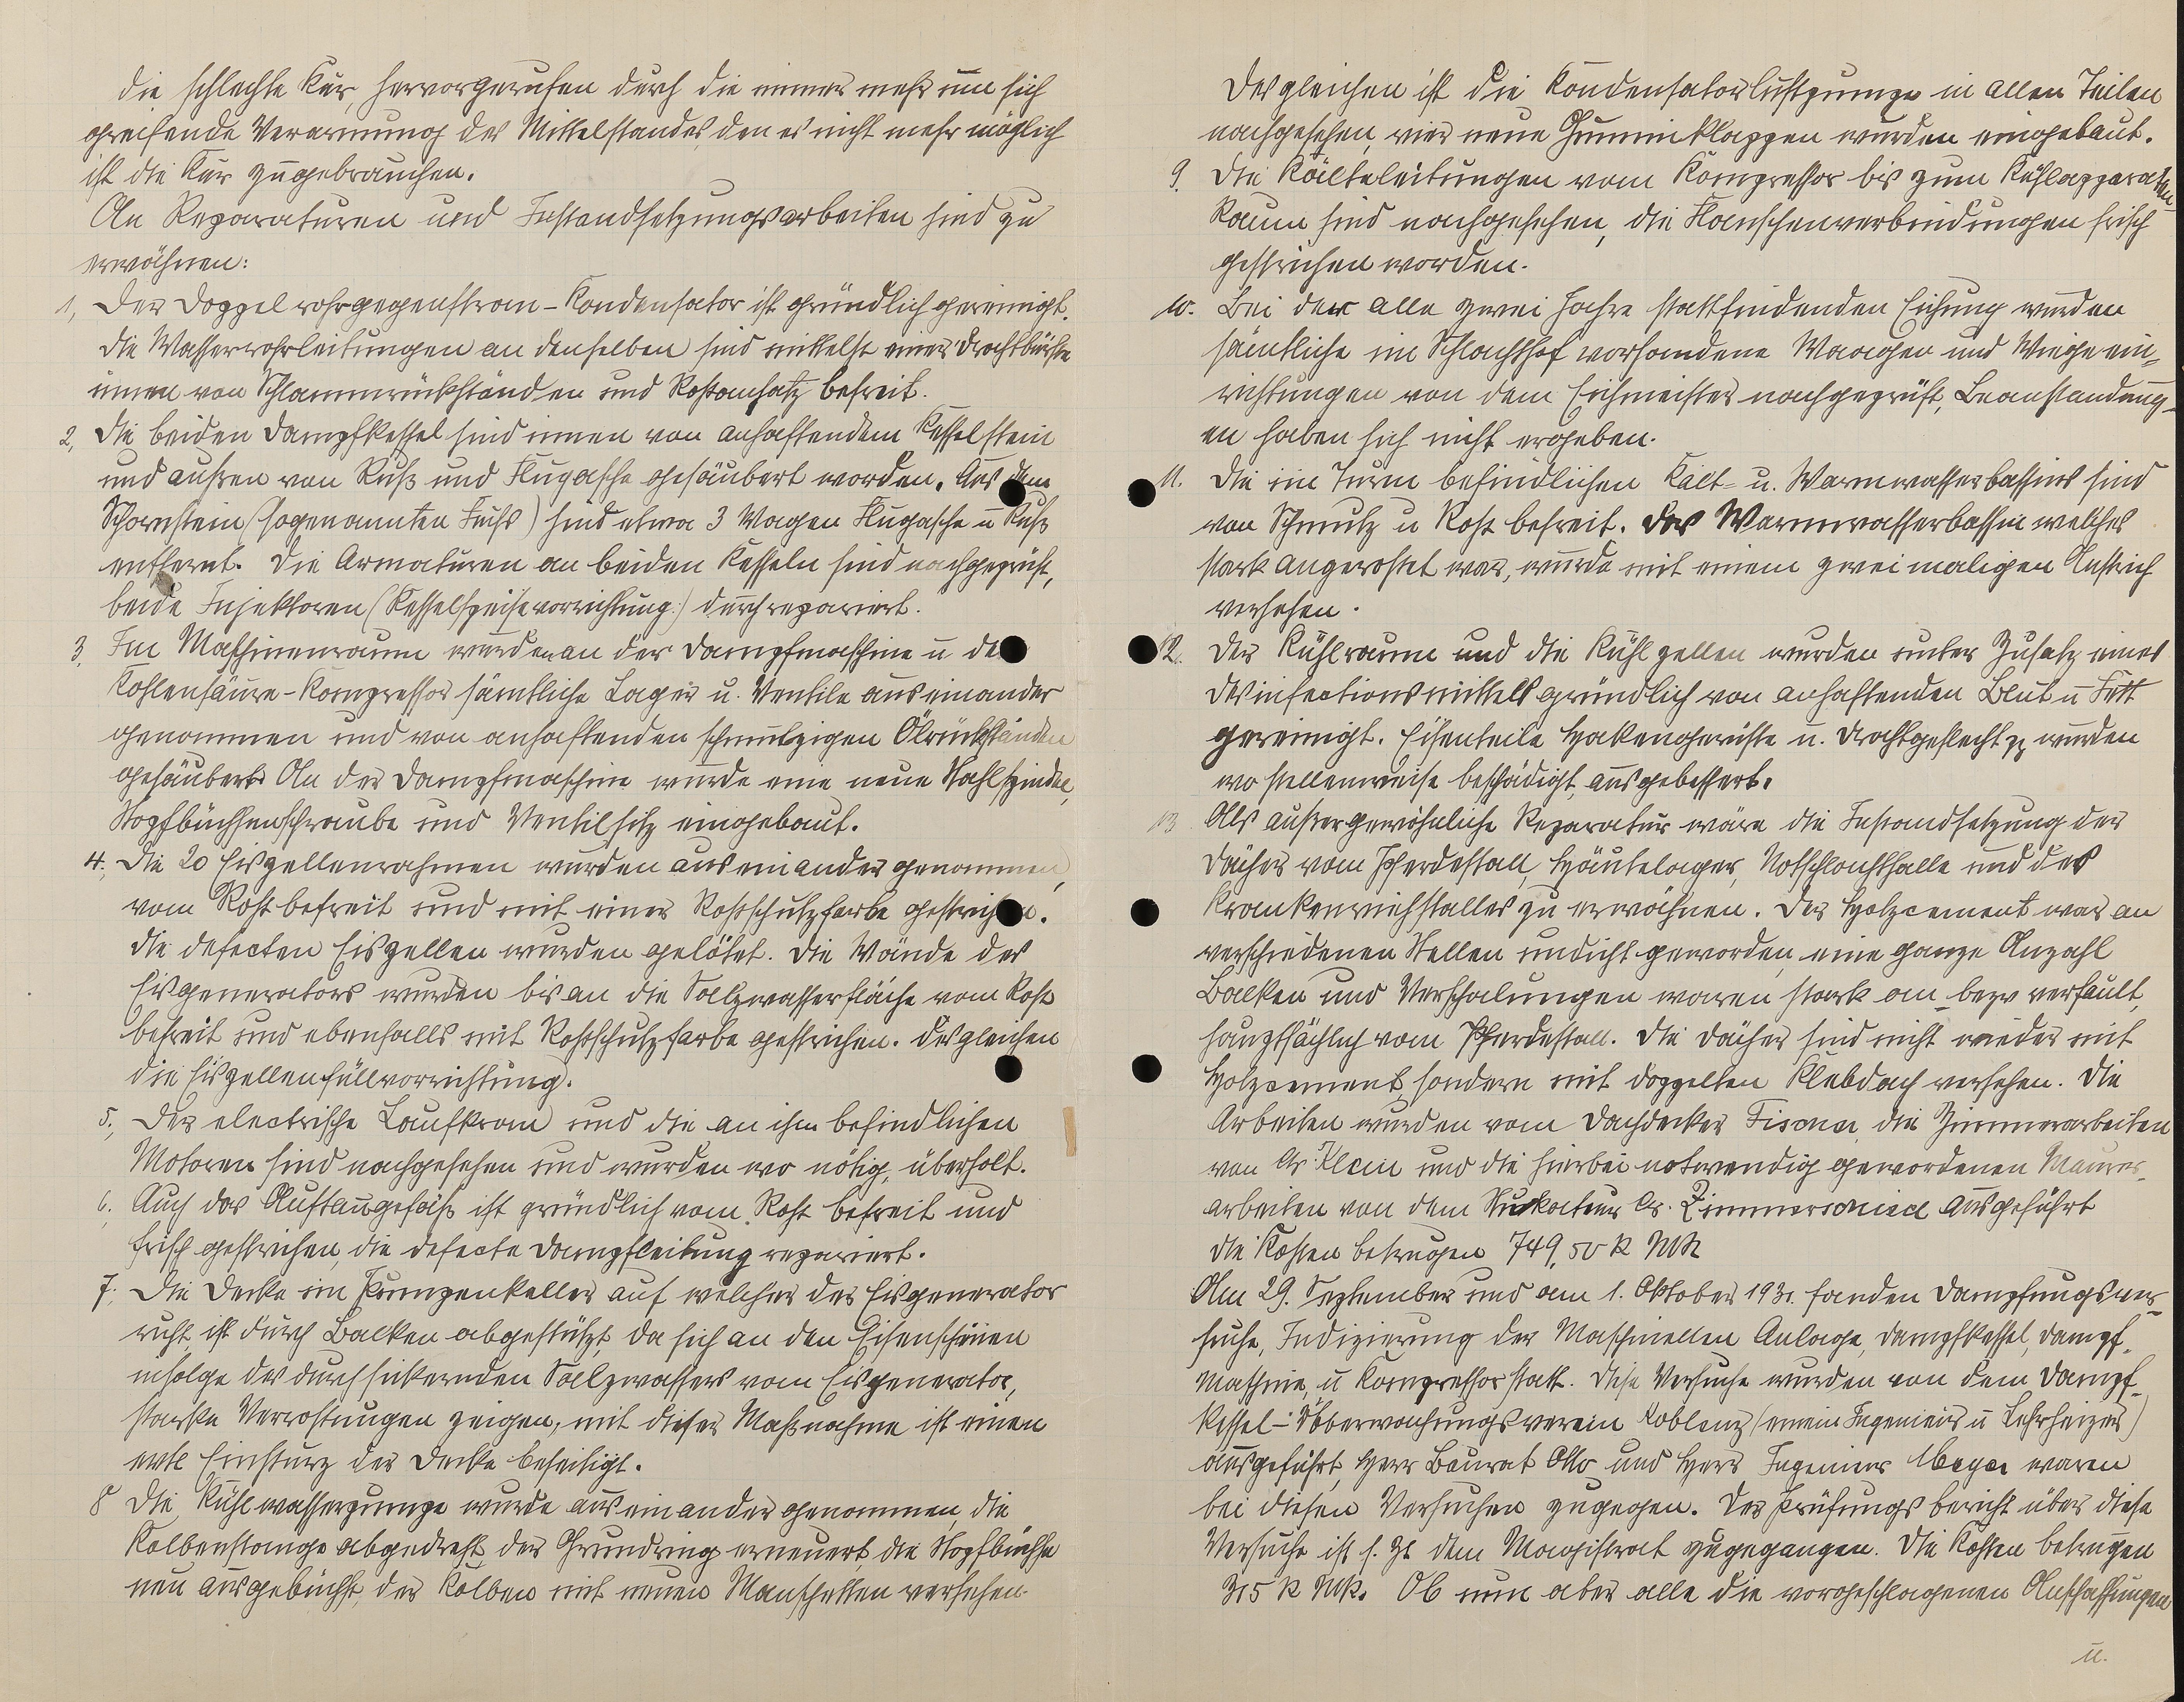 die schlechte Kur, hervorgerufen durch die immer mehr um sich
greifende Verarmung des Mittelstandes, den es nicht mehr möglich
ist die Kur zugebrauchen.
An Reparaturen und Instandsetzungsarbeiten sind zu
erwähnen:
1, Der Doppelrohrgegenstrom-Kondensator ist gründlich gereinigt.
Die Wasserrohrleitungen an denselben sind mittelst einer Drahtbürste
innen von Schlammrückständen und Rostansatz befreit.
2, Die beiden Dampfkessel sind innen von anhaftendem Kesselstein
und außen von Ruß und Flugasche gesäubert worden. Aus dem
Schornstein (sogenannten Fuchs) sind etwa 3 Wagen Flugasche u Ruß
entfernt. Die Armaturen an beiden Kesseln sind nachgeprüft,
beide Injektoren (Kesselspeisevorrichtung) durchrepariert.
3, Im Maschinenraum wurden an der Dampfmaschine u de
Kohlensäure-Kompressor sämtliche Lager u. Ventile auseinander
genommen und von anhaftenden schmutzigen Ölrückständen
gesäubert. An der Dampfmaschine wurde eine neue Stahlspindel,
Stopfbüchsenschraube und Ventilsitz eingebaut.
4. Die 20 Eiszellenrahmen wurden auseinander genommen,
vom Rost befreit und mit einer Rostschutzfarbe gestrichen.
Die defecten Eiszellen wurden gelötet. Die Wände des
Eisgenerators wurden bis an die Salzwasserfläche vom Rost
befreit und ebenfalls mit Rostschutzfarbe gestrichen. Desgleichen
die Eiszellenfüllvorrichtung.
5., Der electrische Laufkran und die an ihm befindlichen
Motoren sind nachgesehen und wurden wo nötig, überholt.
6. Auch das Auftaugefäß ist gründlich vom Rost befreit und
frisch gestrichen, die defecte Dampfleitung repariert.
7. Die Decke im Pumpenkeller auf welcher der Eisgenerator
ruht, ist durch Balken abgestützt, da sich an den Eisenschienen
infolge des durchsickernden Salzwassers vom Eisgenerator,
starke Verrostungen zeigen, mit dieser Maßnahme ist einen
evtl Einsturz der Decke beseitigt.
8 Die Kühlwasserpumpe wurde auseinander genommen, die
Kolbenstange abgedreht, der Grundring erneuert die Stopfbüchse
neu ausgebüchst, der Kolben mit neuen Manschetten versehen.
Desgleichen ist die Kondensatorluftpumpe in allen Teilen
nachgesehen, vier neue Gummiklappen wurden eingebaut.
9. Die Kälteleitungen vom Kompressor bis zum Kühlapparaten-
Raum sind nachgesehen, die Flanschenverbindungen frisch
gestrichen worden.
10. Bei der alle zwei Jahre stattfindenden Eichung wurden
sämtliche im Schlachthof vorhandene Waagen und Wiegeein-
richtungen von dem Eichmeister nachgeprüft, Beanstandung-
en haben sich nicht ergeben.
11. Die im Turm befindlichen Kalt- u. Warmwasserbassins sind
von Schmutz u Rost befreit. Das Warmwasserbassin welches
stark angerostet war, wurde mit einem zweimaligen Anstrich
versehen.
12. Der Kühlraum und die Kühlzellen wurden unter Zusatz eines
Desinfectionsmittels gründlich von anhaftenden Blut u Fett
gereinigt. Eisenteile Hakengerüste u. Drahtgeflecht pp wurden
wo stellenweise beschädigt, ausgebessert.
13 Als außergewöhnliche Reparatur wäre die Instandsetzung der
Dächer vom Pferdestall, Häutelager, Notschlachthalle und des
Krankenviehstalles zu erwähnen. Der Holzcement war an
verschiedenen Stellen undicht geworden, eine ganze Anzahl
Balken und Verschalungen waren stark an- bezw verfault,
hauptsächlich vom Pferdestall. Die Dächer sind nicht wieder mit
Holzcement, sondern mit doppelten Klebdach versehen. Die
Arbeiten wurden vom Dachdecker die Zimmerarbeiten
von Klein und die hierbei notwendig gewordenen Maurer-
arbeiten von dem Stukateur ausgeführt
Die Kosten betrugen 749,50 R Mk
Am 29. September und am 1. Oktober 1931. fanden Dampfungsver-
suche, Indizierung der Maschinellen Anlage, Dampfkessel, Dampf-
maschine, u Kompressor statt. Diese Versuche wurden von dem Dampf-
kessel-Überwachungsverein Koblenz (einem Ingenieur u Lehrheizer)
ausgeführt, Herr Baurat Otto und Herr Ingenieur Meyer waren
bei diesen Versuchen zugegen. Der Prüfungsbericht über diese
Versuche ist s. Zt dem Magistrat zugegangen. Die Kosten betrugen
315 R Mk. Ob nun aber alle die vorgeschlagenen Anschaffungen
u.